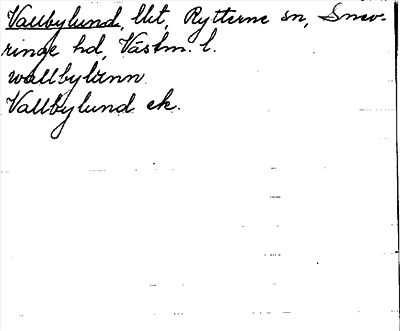 Vallbylund, llit, Rytterne sn, Snev-
ringe hd, Västm. l.
wallbylünn
Vallbylund ek.